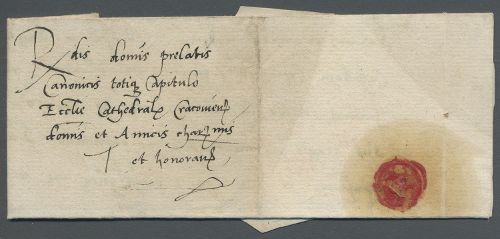 Rdis dominis prelatis
Canonicis totiq Capitulo
Eccl̄ie Cathedral Cracovien
dominis et Amicis charmis
et honoran